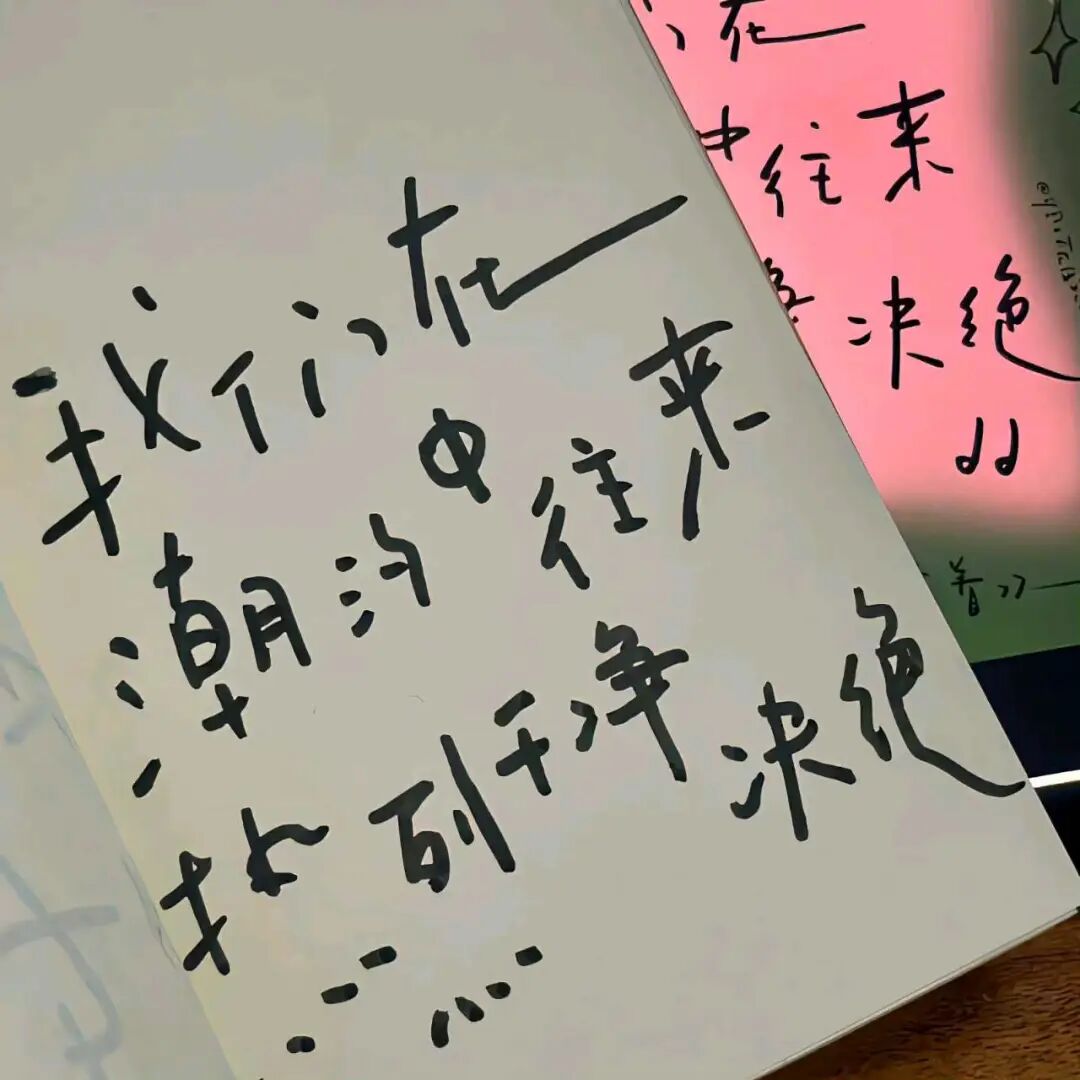 我们在
潮汐中往来
找到干净决绝
在
中往来
决绝
着